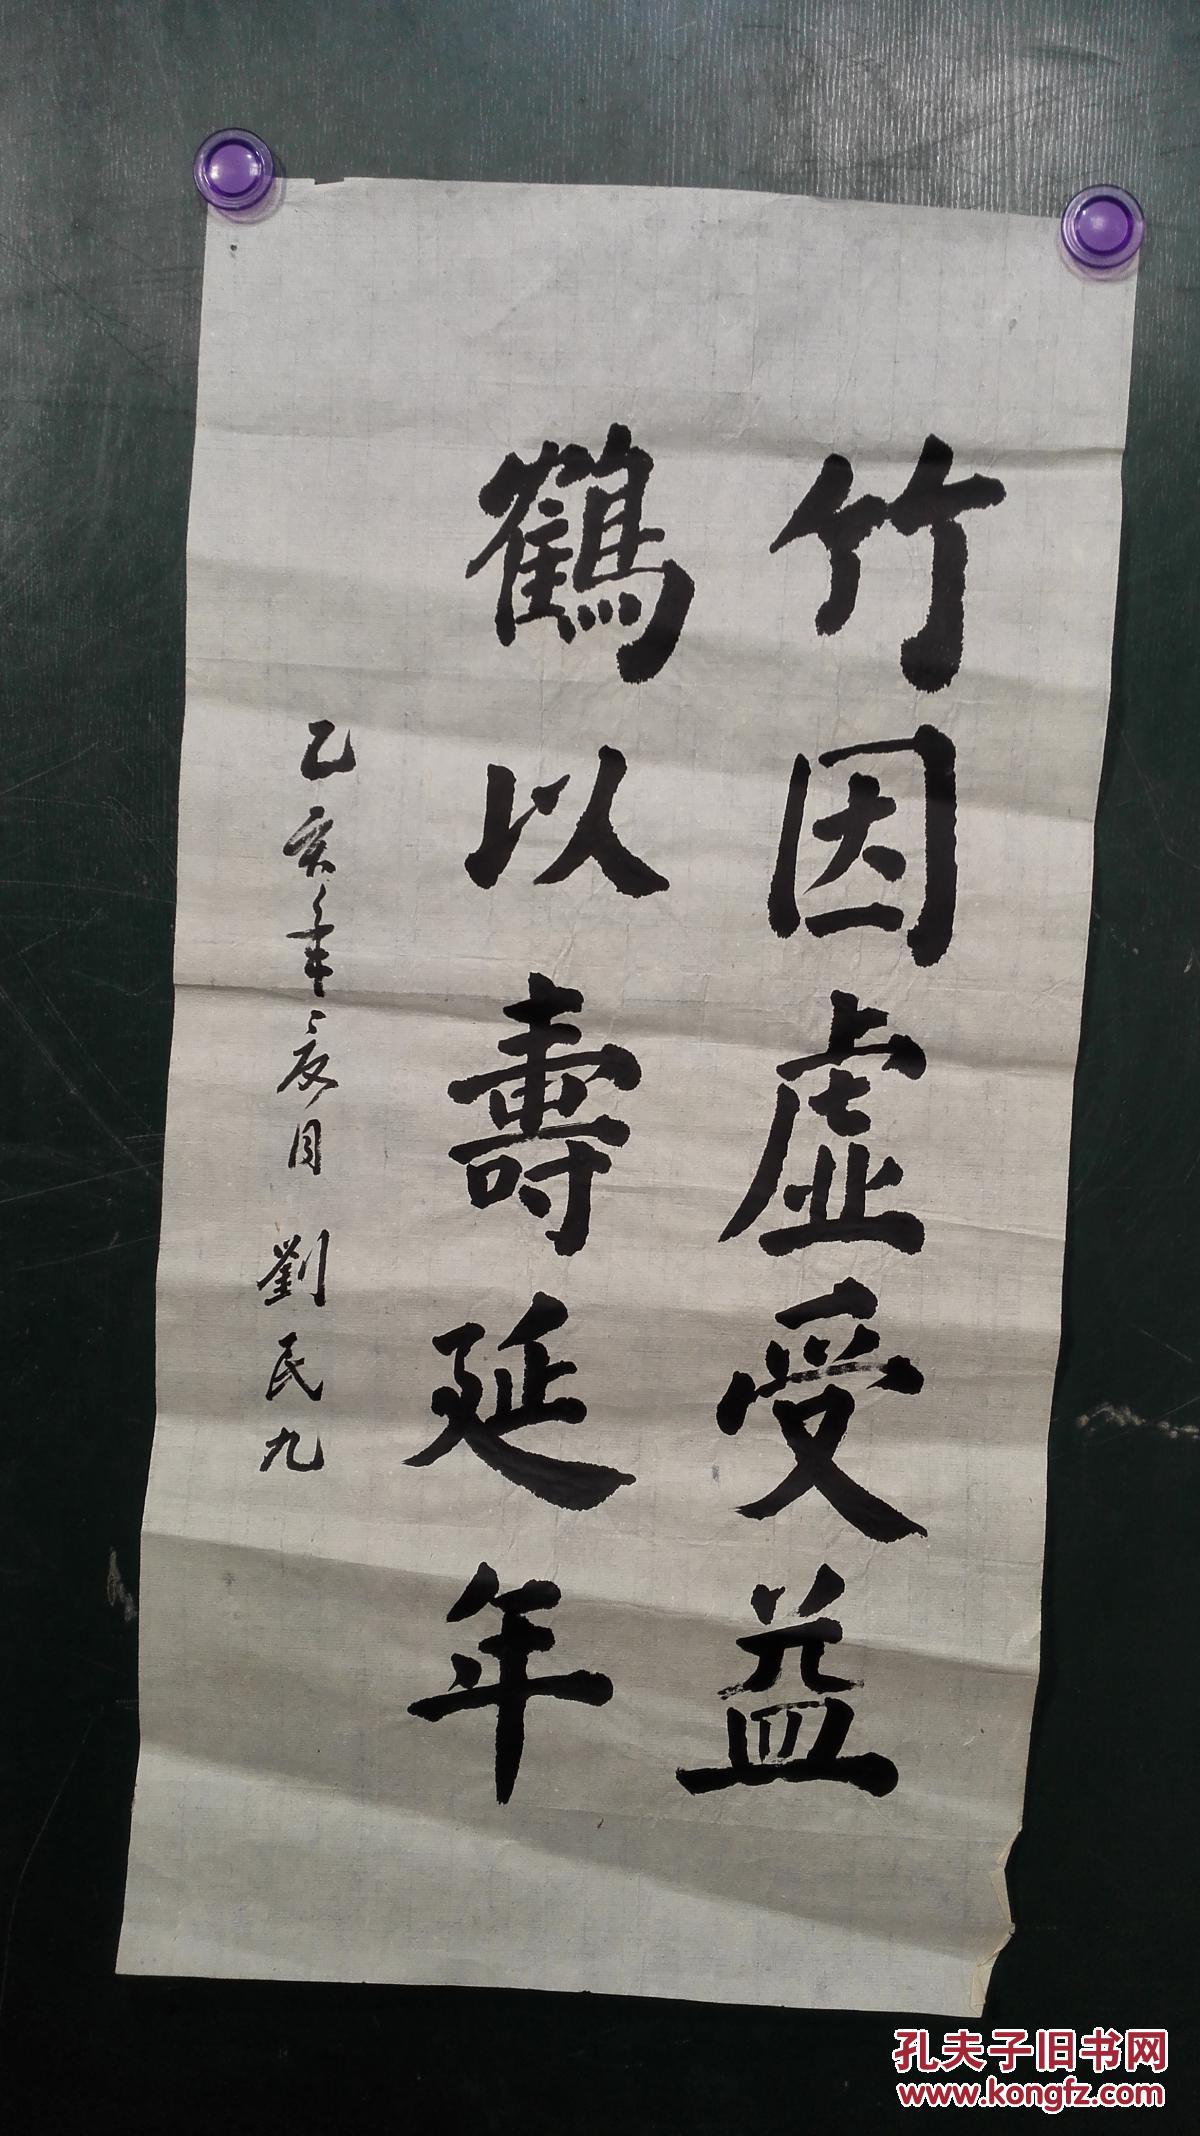 竹因虛受益
鶴以壽延年
乙亥年之夜月 劉民九
孔夫子旧书网
www.kongfz.com